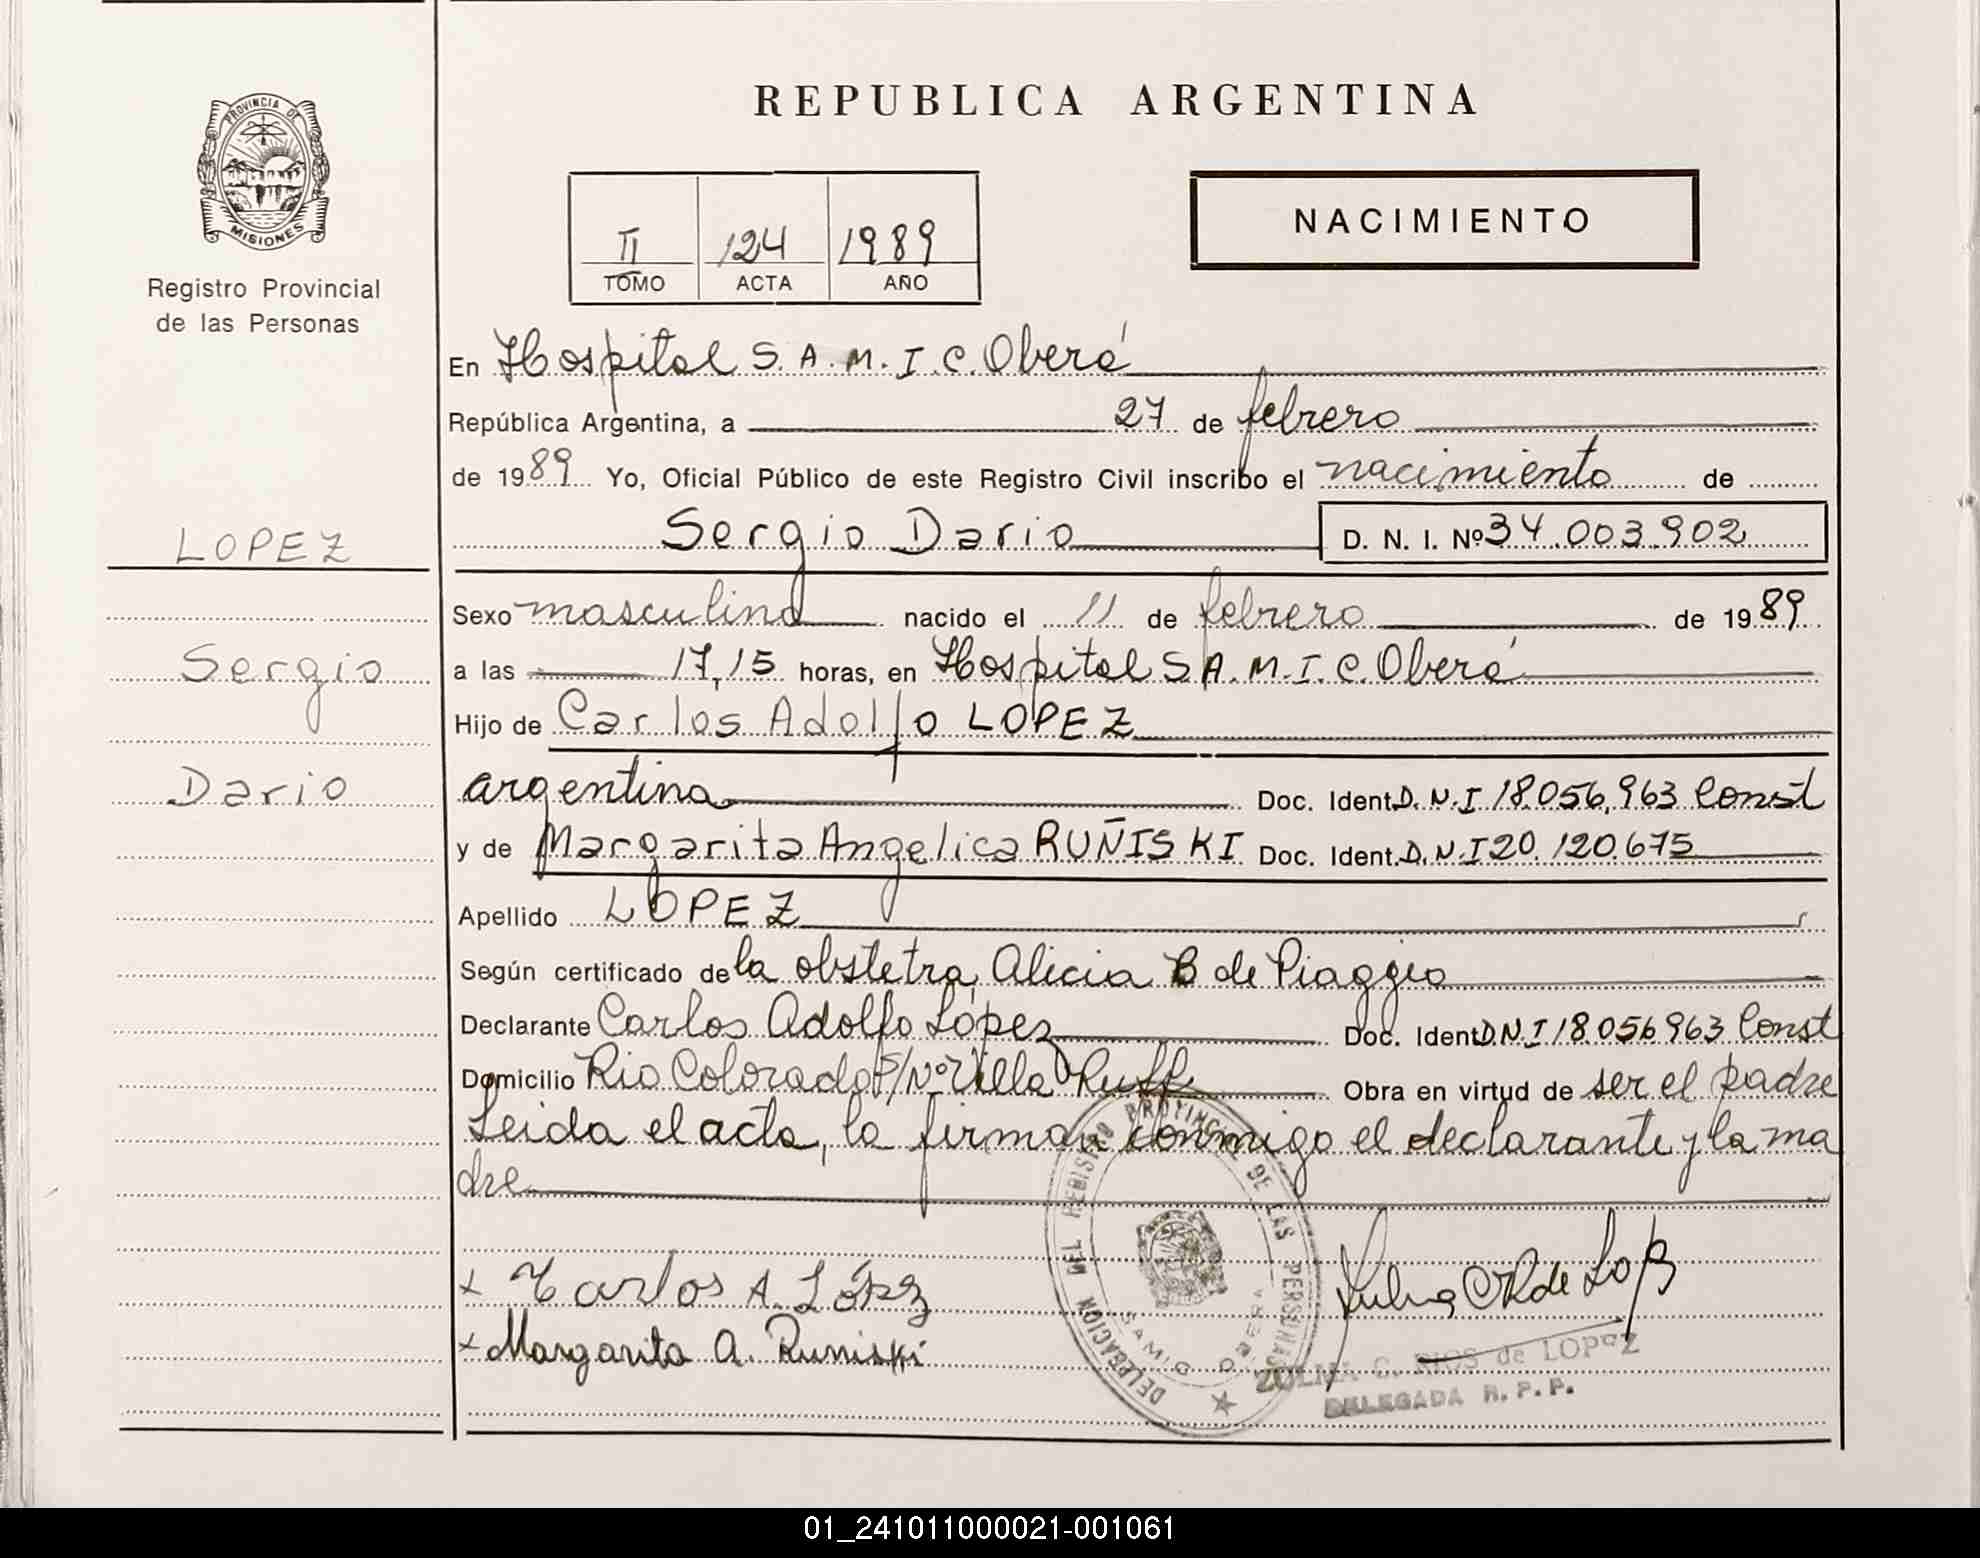 REPUBLICA ARGENTINA
PROVINCIA DE
MISIONES
Registro Provincial
de las Personas
II 124 1989
TOMO ACTA AÑO
NACIMIENTO
En Hospital S.A.M.I.C. Oberá
República Argentina, a 27 de febrero
de 1989 Yo, Oficial Público de este Registro Civil inscribo el nacimiento de
Sergio Dario D. N. I. Nº 34.003.902
LOPEZ
Sergio
Dario
Sexo masculino nacido el 11 de febrero de 1989
a las 17,15 horas, en Hospital S.A.M.I.C. Oberá
Hijo de Carlos Adolfo LOPEZ
argentina Doc. Ident. D.N.I 18.056.963 Const
y de Margarita Angelica RUÑISKI Doc. Ident. D.N.I 20.120.675
Apellido LOPEZ
Según certificado de la obstetra Alicia B de Piaggio
Declarante Carlos Adolfo López Doc. Ident D.N.I 18.056963 Const
Domicilio Rio Colorado S/Nº Villa Ruff Obra en virtud de ser el padre
Leida el acta, la firman conmigo el declarante y la ma
dre
+ Carlos A. López
+ Margarita A. Runiski
DELEGACION DEL REGISTRO PROVINCIAL DE LAS PERSONAS
SAMIC OBERA
ZULMA C. RIOS de LOPEZ
DELEGADA R. P. P.
01_241011000021-001061